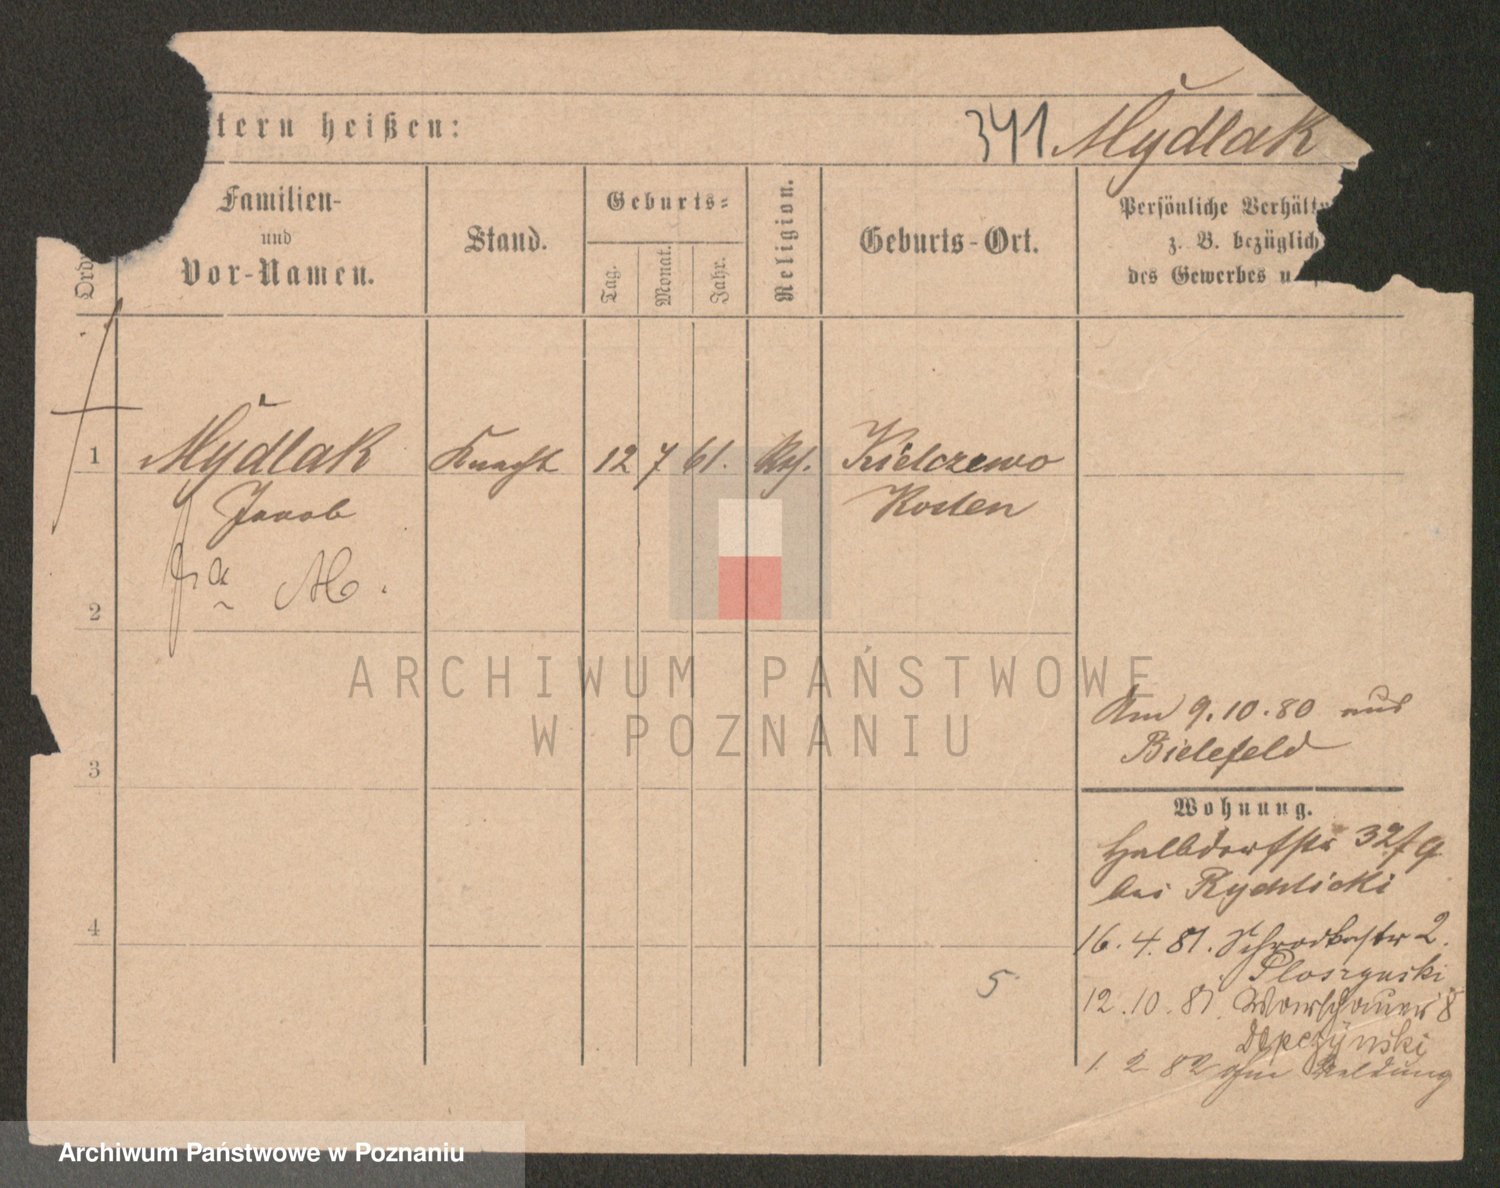 tern heißen:
341 Mÿdlak
Familien-
und
Vor-Namen.
Stand.
Geburts-
Tag.
Monat.
Jahr.
Religion.
Geburts-Ort.
Persönliche Verhält
z. B. bezüglich
des Gewerbes u.
Ordn
1
Mÿdlak
Knecht
12 7 61.
Kth.
Kielczewo
Jacob
Kosten
M.
2
Am 9.10.80 aus
Bielefeld
3
Wohnung.
Halbdorfstr 32
bei Rychlicki
4
16. 4. 81. Schrodkastr 2.
Ploszynski
5
12. 10. 81. Warschauer 8
1 2 82 ohne Meldung
ARCHIWUM PAŃSTWOWE
W POZNANIU
Archiwum Państwowe w Poznaniu